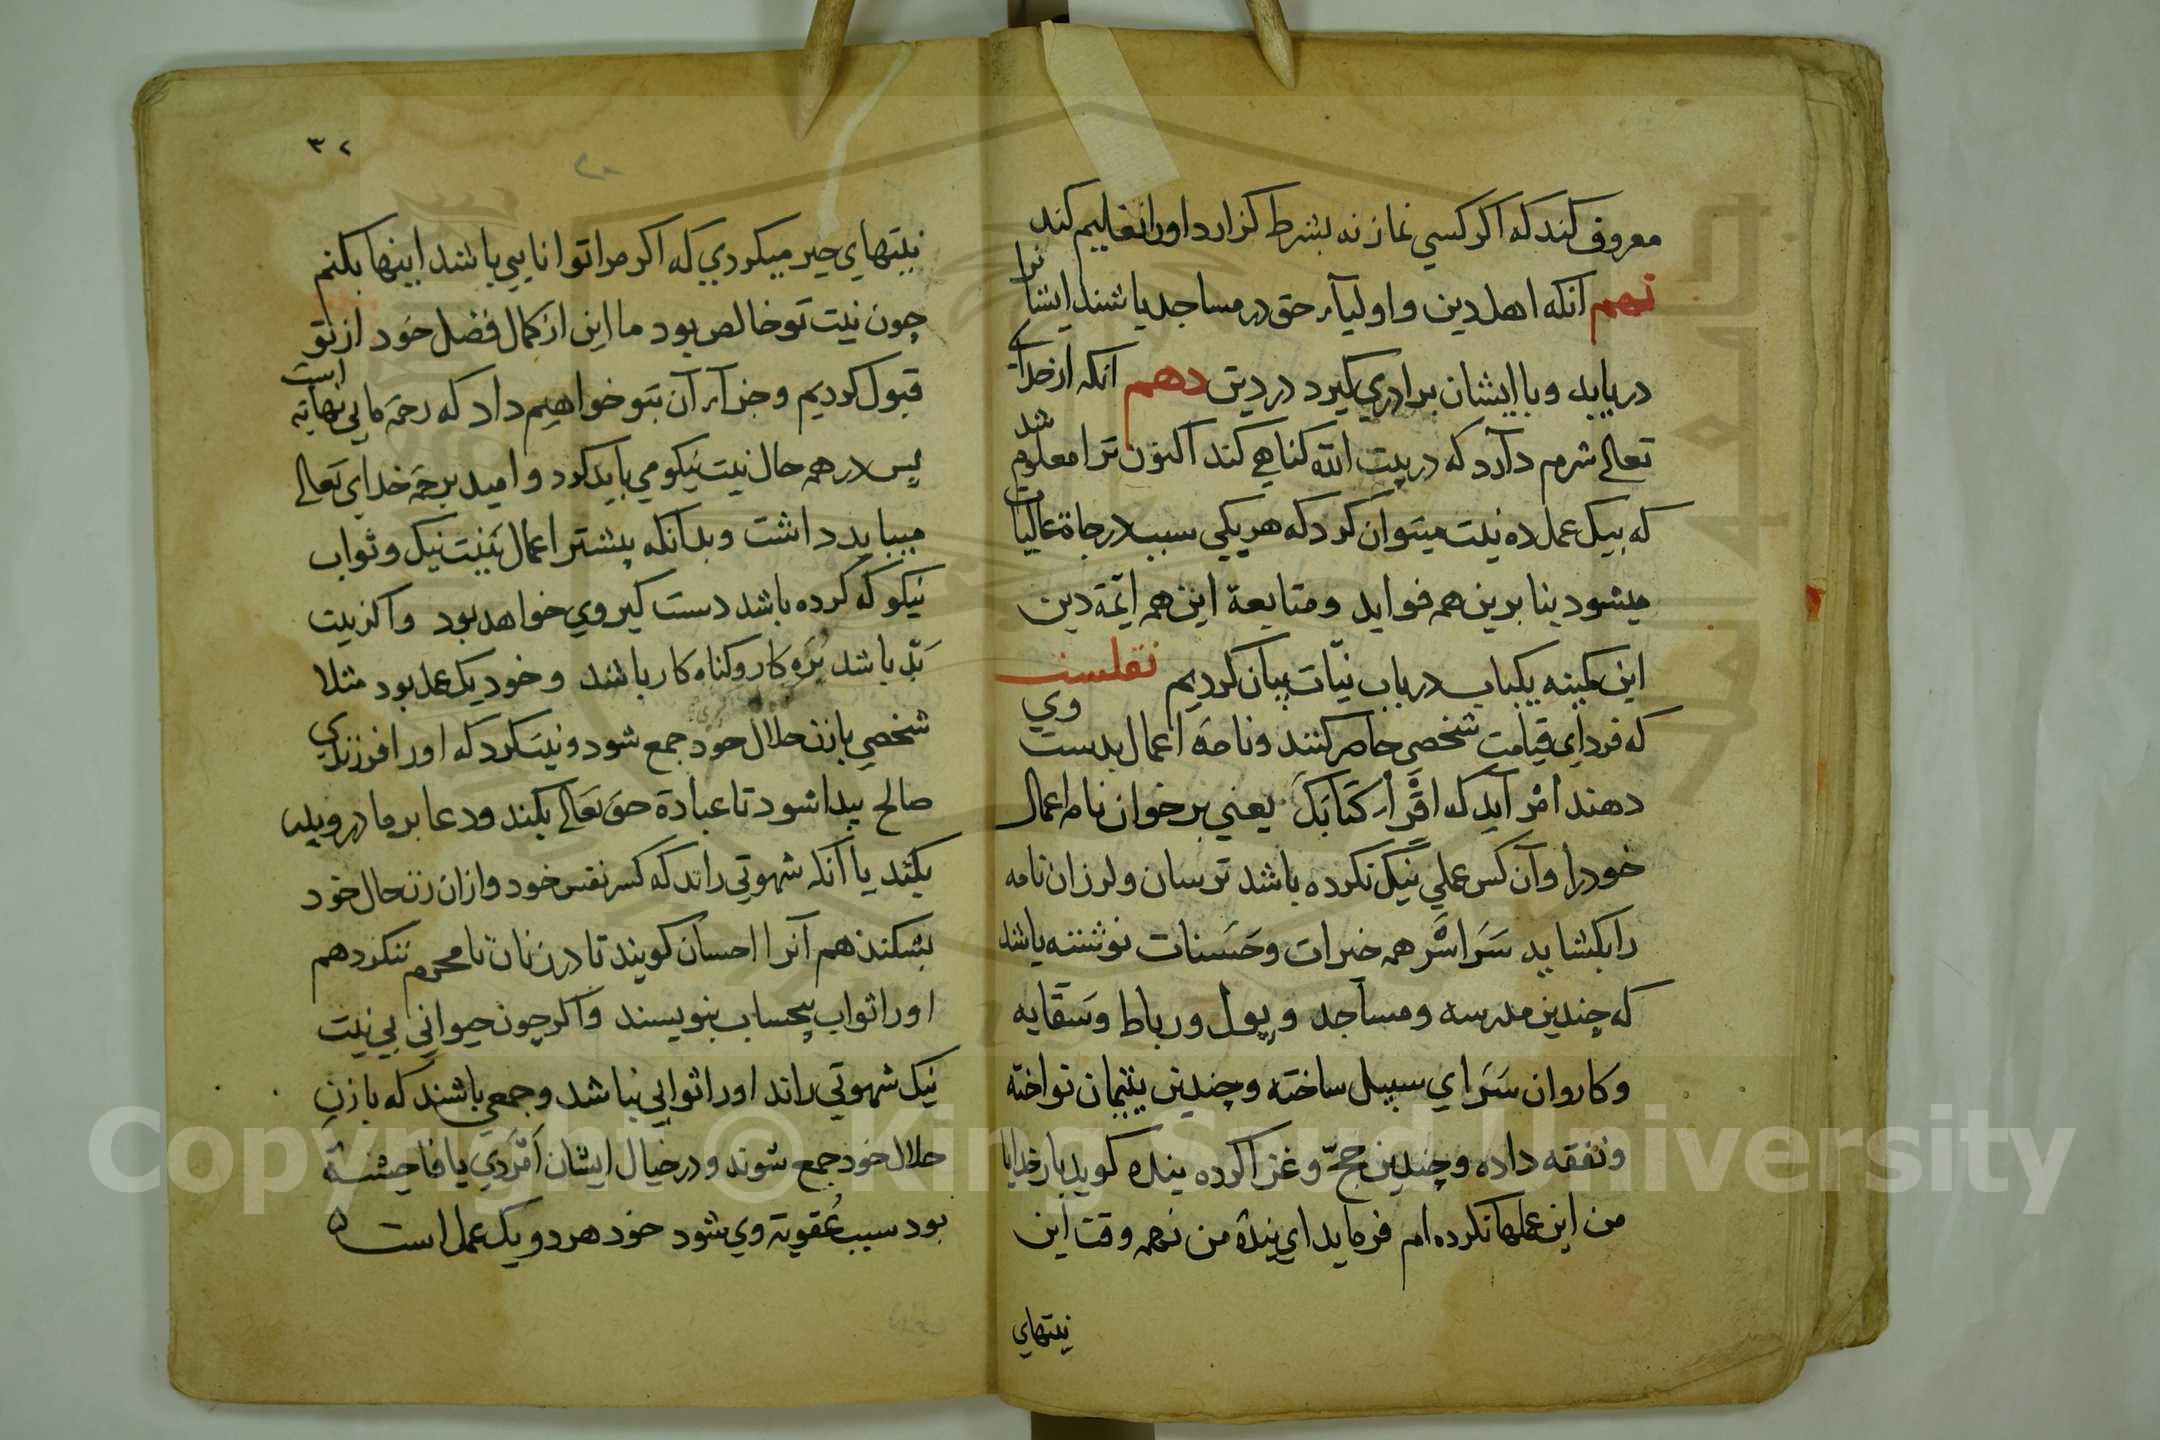 معروف کند که اکر کسي نماز نه بشرط کزارد اورا تعلیم کند
نهم انکه اهل دین و اولیآء حق در مساجد باشند ایشانرا
دریابد و با ایشان برادري کیرد در دین دهم انکه از خدای
تعالے شرم دارد که در بیت الله کناهے کند اکنون ترا معلوم شد
که بیک عمل ده نیت میتوان کرد که هر یکي سبب درجاة عالیات
میشود بنا برین همه فواید و متابعة این همه ایّمة دین
این کمینه یکباب در باب نیّات بیان کردیم نقلست
که فرداي قیامت شخصي حاضر کنند و نامهٔ اعمال بدست وي
دهند امْر آید که اقْرَأْ کتَابَکَ یعني بر خوان نامه اعمال
خود را و آن کس عملي نیک نکرده باشد ترسان و لرزان نامه
را بکشاید سَرَاسَر همه خیرات و حَسَنات نوشته باشد
که چندین مدرسه و مساجد و پول و رباط و سَقّایه
و کاروان سَرَاي سبیل ساخته و چندین یتیمان نواخته
و نفقه داده و چندین حجّ و غزا کرده بنده کوید بار خدایا
من این عملها نکرده ام فرماید اي بندهٔ من نهمه وقت این
نیتهاي
٣٢
نیتهاي خیر میکردي که اکر مرا توانایي باشد اینها بکنم
چون نیت تو خالص بود ما این از کمال فضل خود از تو
قبول کردیم و جزآء آن بتو خواهیم داد که رحمة ما بي نهایة است
پس در همه حال نیت نیکو مي باید کرد و امید برحمة خداي تعالے
میباید داشت و بدآنکه بیشتر اعمال بنیت نیک و ثواب
نیکو که کرده باشد دست کیر وي خواهد بود و اکر نیت
بَدْ باشد بزه کار و کناه کار باشد و خود یک عمل بود مثلا
شخصي با زن حلال خود جمع شود و نیت کرد که اورا فرزندي
صالح پیدا شود تا عبادة حق تعالے بکند و دعا بر مادر و پدر
بکند یا آنکه شهوتي راند که کسر نفس خود و ازان زن حلال خود
بشکند هم آنرا احسان کویند تا در زنان نا محرم ننکرد هم
اورا ثواب بیحساب بنویسند و اکر چون حیواني بي نیت
نیک شهوتي راند اورا ثوابي نباشد و جمعي باشند که با زن
حلال خود جمع شوند و در خیال ایشان اَمْرَدي یا فاحشة
بود سبب عُقوبة وي شود خود هر دو یک عمل است
Copyright © King Saud University